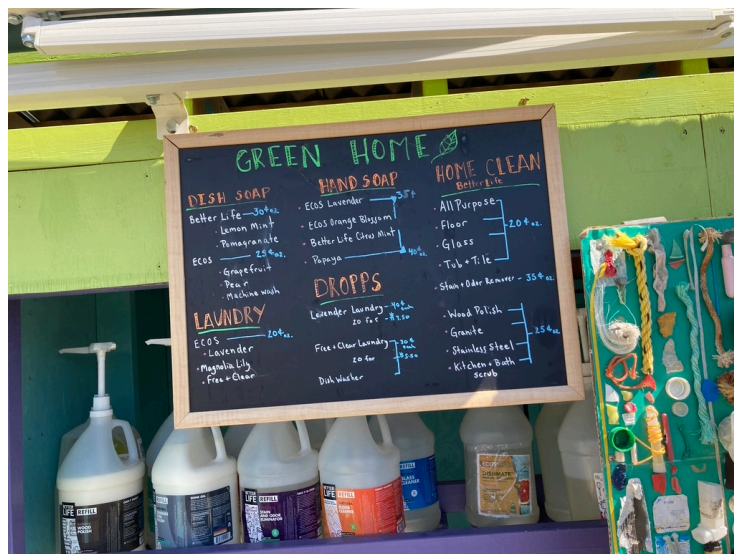 GREEN HOME
DISH SOAP
Better Life — 30¢ oz.
· Lemon Mint
· Pomagranate
ECOS — 25¢ oz.
· Grapefruit
· Pear
· Machine wash
LAUNDRY
ECOS — 20¢ oz.
· Lavender
· Magnolia Lily
· Free + Clear
HAND SOAP
· ECOS Lavender 35¢
· ECOS Orange Blossom
· Better Life Citrus Mint
· Papaya 40¢ oz.
DROPPS
Lavender Laundry - 40¢ each
20 for - $7.50
Free + Clear Laundry 30¢ each
20 for $5.50
Dish Washer
HOME CLEAN
Better Life
· All Purpose
· Floor
· Glass
· Tub + Tile
20¢ oz.
· Stain + Odor Remover - 35¢ oz.
· Wood Polish
· Granite
· Stainless Steel
· Kitchen + Bath scrub
25¢ oz.
BETTER LIFE
REFILL
WOOD POLISH
BETTER LIFE
REFILL
BETTER LIFE
REFILL
STAIN AND ODOR ELIMINATOR
BETTER LIFE
REFILL
FLOOR CLEANER
REFILL
CLEANER
ECOS
DISHMATE